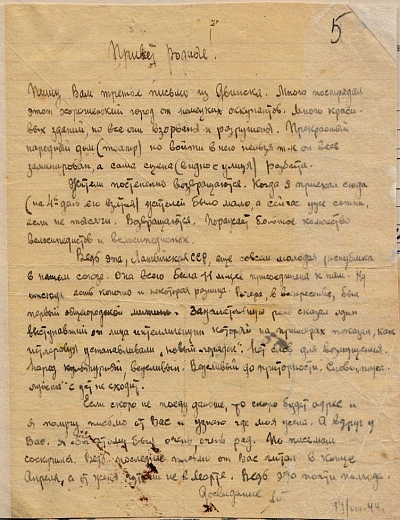 5
Привет родные!
Пишу Вам третье письмо из Двинска. Много пострадал
этот хорошенький город от немецких оккупантов. Много краси-
вых зданий, но все они взорваны и разрушены. Прекрасный
народный дом (театр) но войти в него нельзя т-к он весь
заминирован, а сама сцена (видно с улицы) разбита.
Жители постепенно возвращаются. Когда я приехал сюда
(на 4й день его взятия) жителей было мало, а сейчас уже сотни,
если не тысячи. Возвращаются. Поражает большое количество
велосипедистов и велосипедисток.
Ведь эта, Латвийская ССР, еще совсем молодая республика
в нашем союзе. Она всего была 11 м-цев присоединена к нам. Ну
отсюда есть конечно и некоторая разница. Вчера, в воскресенье, был
первый общегородской митинг. Замечательную речь сказал один
выступавший от лица интеллигенции который на примерах показал, как
гитлеровцы устанавливали "новый порядок". Нет слов для возмущения.
Народ культурный вежливый. Вежливый до приторности. Слово
с уст не сходит.
Если скоро не поеду дальше, то скоро будет адрес и
я получу письмо от Вас и узнаю где моя жена. А вдруг у
Вас. Я бы этому был очень очень рад. По письмам
соскучился. Ведь последнее письмо от Вас читал в конце
Апреля, а от жены в Марте. Ведь это почти полгода.
Досвидание
14/VIII-44.